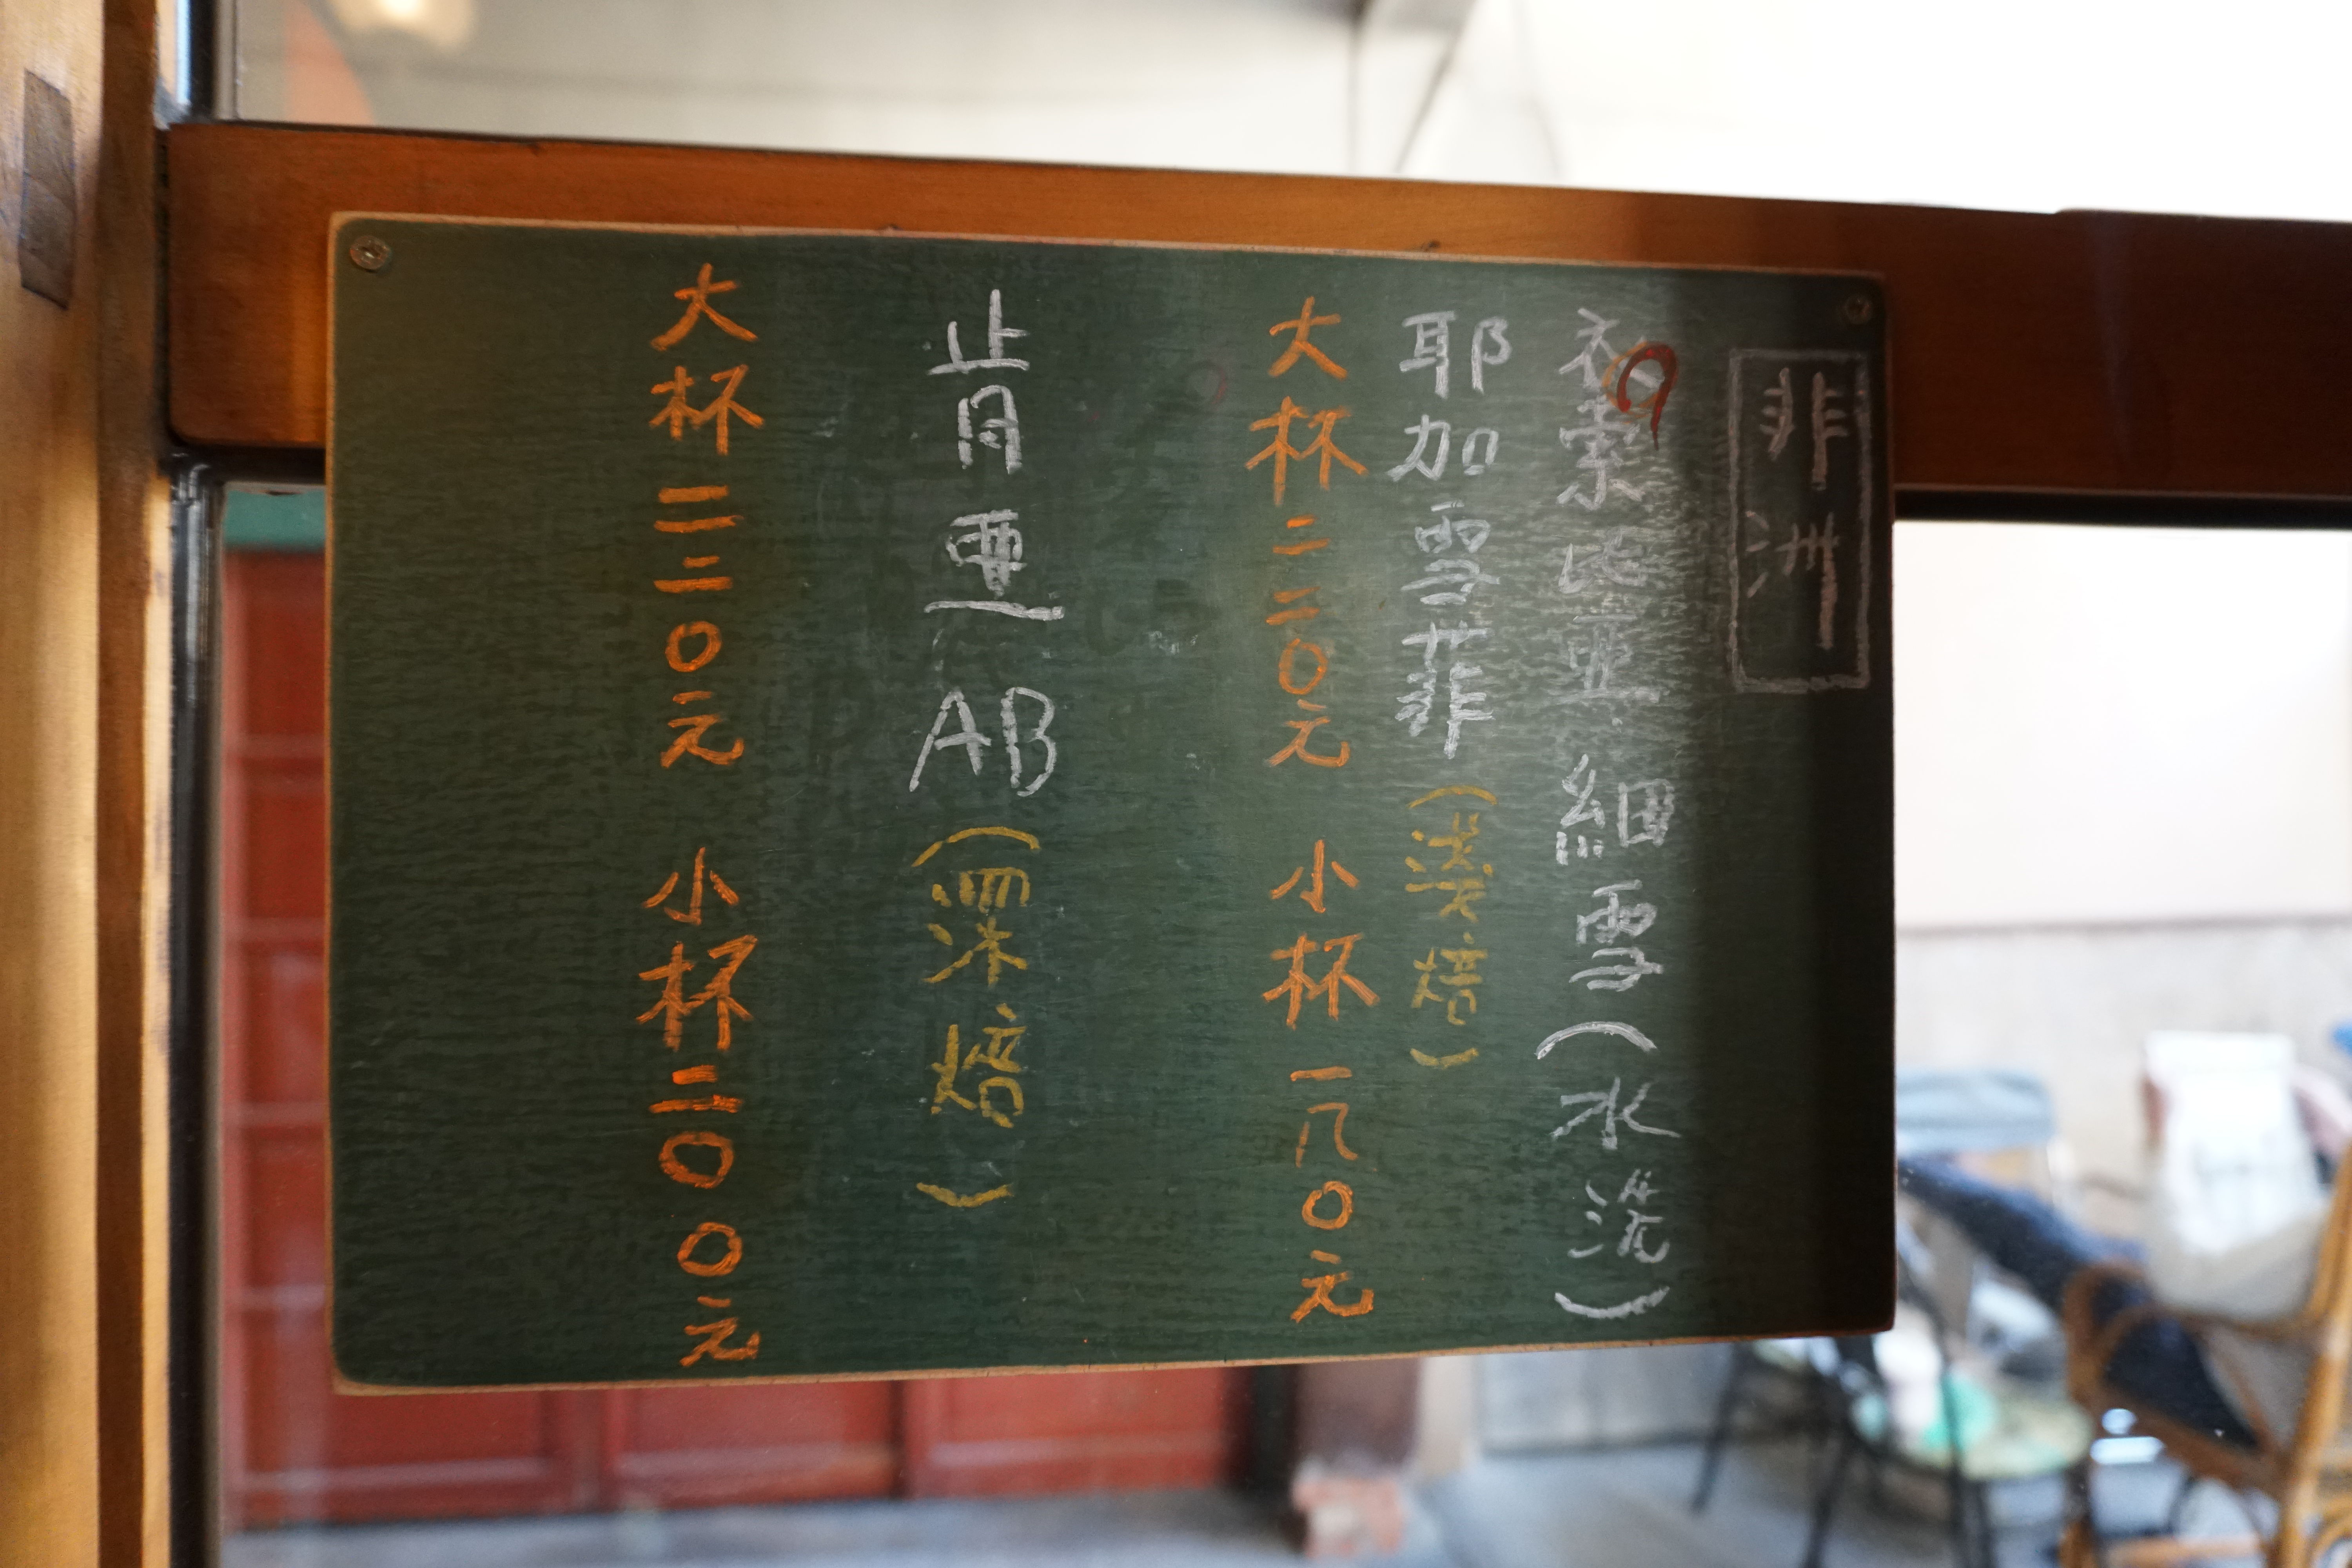 非洲
衣索比亞 細雪(水洗)
耶加雪菲(淺焙)
大杯二二〇元 小杯一八〇元
肯亞AB(深焙)
大杯二二〇元 小杯二〇〇元